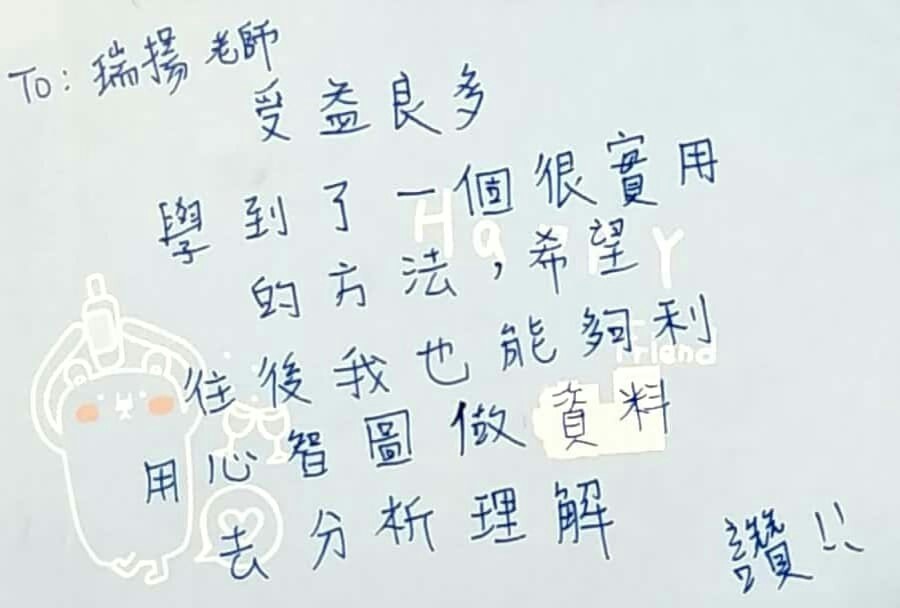 To: 瑞揚 老師
受益良多
學到了一個很實用
的方法，希望
往後我也能夠利
用心智圖做資料
去分析理解
讚!!
Happy
friend